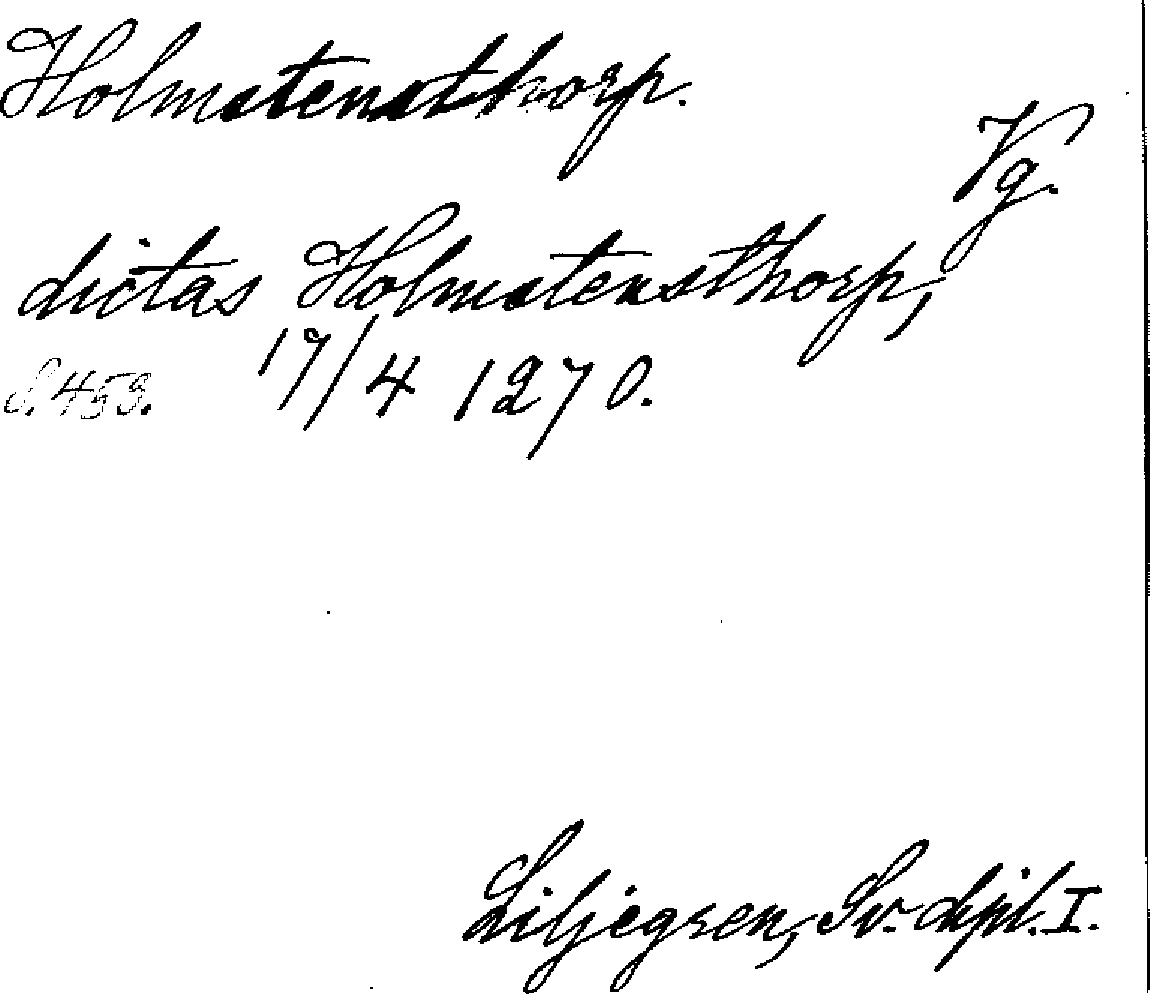 Holmstensthorp.
Vg.
dictas Holmstensthorp,
S. 453. 17/4 1270.
Liljegren, Sv. dipl. I.